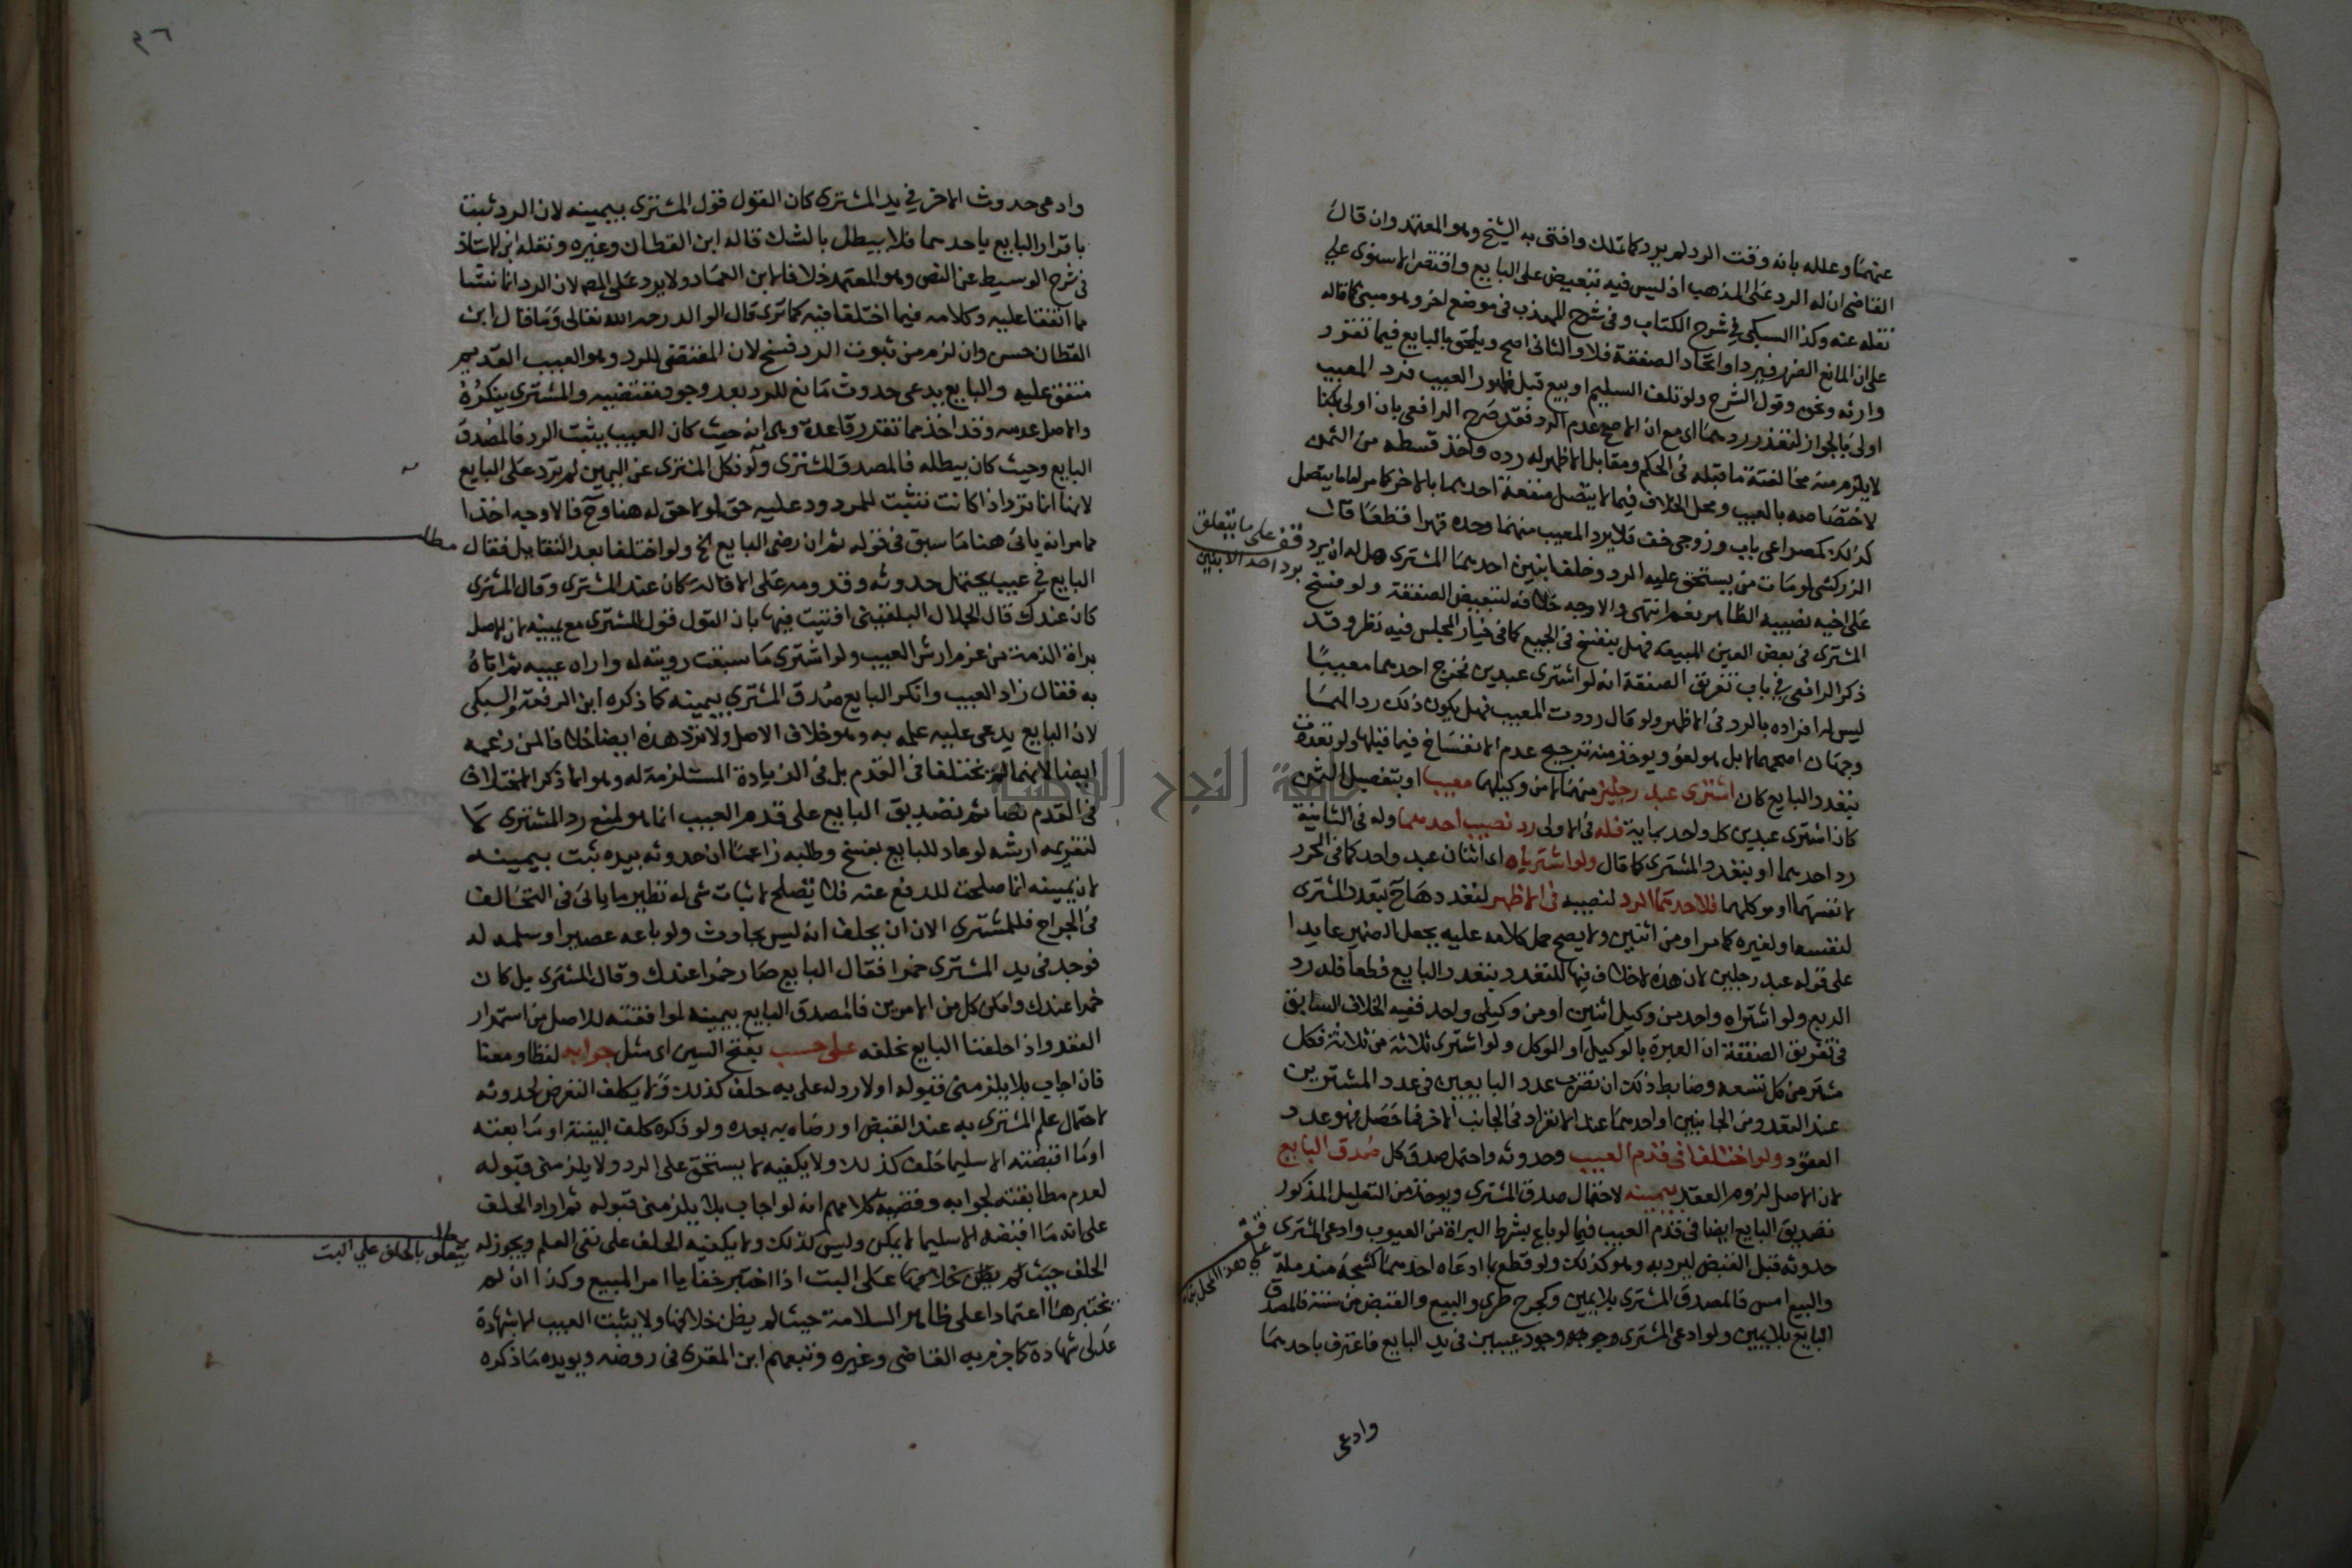 عنهما وعلله بانه وقت الرد لم يرد كما تملك وافتى به الشيخ وهو المعتمد وان قال
القاضي ان له الرد على المذهب اذ ليس فيه تبعيض على البايع واقتصر الاسنوي علي
نقله عنه وكذا السبكي في شرح الكتاب وفي شرح المهذب في موضع اخر وهو مبني كما قاله
على ان المانع الضرر فيرد او اتحاد الصفقة فلا والثاني اصح ويلحق بالبايع فيما تقرر
وارثه ونحوه وقول الشرح ولو تلف السليم او بيع قبل ظهور العيب فرد المعيب
اولى بالجواز لتعذر ردهما اي مع ان الاصح عدم الرد فقد صرح الرافعي بان اولى بكذا
لا يلزم منه مخالفته ما قبله في الحكم ومقابل الاظهر له رده واخذ قسطه من الثمن
لاختصاصه بالعيب ومحل الخلاف فيما لا يتصل منفعة احدهما بالاخر كما مر اما ما يتصل
كذلك كمصراعي باب وزوجي خف فلا يرد المعيب منهما وحده قهرا قطعا قال
الزركشي لو مات من يستحق عليه الرد وخلف ابنين احدهما المشتري هل له ان يرد
على اخيه نصيبه الظاهر نعم انتهى والاوجه خلافه لتبعيض الصفقة ولو فسخ
المشتري في بعض العين المبيعة فهل ينفسخ في الجميع كما في خيار المجلس فيه نظر وقد
ذكر الرافعي في باب تفريق الصفقة انه لو اشترى عبدين فخرج احدهما معيبا
ليس له افراده بالرد في الاظهر ولو قال رددت المعيب فهل يكون ذلك ردا لهما
وجهان اصحهما لا بل هو لغو ويوخذ منه ترجيح عدم الانفساخ فيما قبلها ولو تعددت
بتعدد البايع كان اشترى عبد رجلين منهما لا من وكيلهما معيبا او بتفصيل الثمن
كان اشترى عبدين كل واحد بماية فله في الاولى رد نصيب احدهما وله في الثانية
رد احدهما او بتعدد المشتري كما قال ولو اشترياه اي اثنان عبد واحد كما في المحرر
لا نفسهما او موكلهما فلاحدهما الرد لنصيبه في الاظهر لتعددها ح بتعدد المشتري
لنفسه او لغيره كما مر او من اثنين ولا يصح حمل كلامه عليه بجعل الضمير عايدا
على قوله عبد رجلين لان هذه لا خلاف فيها للتعدد بتعدد البايع قطعا فله رد
الربع ولو اشتراه واحد من وكيل اثنين او من وكيلي واحد ففيه الخلاف السابق
في تفريق الصفقة ان العبرة بالوكيل او الموكل ولو اشترى ثلاثة من ثلاثة فكل
مشتر من كل تسعه وضابط ذلك ان تضرب عدد البايعين في عدد المشترين
عند التعدد من الجانبين او احدهما عند الانفراد في الجانب الاخر فما حصل فهو عدد
العقود ولو اختلفا في قدم العيب وحدوثه واحتمل صدق كل صدق البايع
لان الاصل لزوم العقد بيمينه لاحتمال صدق المشتري ويوخذ من التعليل المذكور
تصديق البايع ايضا في قدم العيب فيما لو باع بشرط البراة من العيوب وادعى المشتري
حدوثه قبل القبض ليرد به وهو كذلك ولو قطع بما ادعاه احدهما كشجة مندملة
والبيع امس فالمصدق المشتري بلا يمين وكجرح طري والبيع والقبض من سنة فالمصدق
البايع بلا يمين ولو ادعى المشتري وجود عيبين في يد البايع فاعترف باحدهما
وادعى
قف على ما يتعلق
برد احد الابنين
قف
على هذا المحل
٣٦
وادعى حدوث الاخر في يد المشتري كان القول قول المشتري بيمينه لان الرد ثبت
باقرار البايع باحدهما فلا يبطل بالشك قاله ابن القطان وغيره ونقله ابن الاستاذ
في شرح الوسيط عن النص وهو المعتمد خلافا لابن العماد ولا يرد على المص لان الرد انما نشا
مما اتفقا عليه وكلامه فيما اختلفا فيه كما ترى قال الوالد رحمه الله تعالى وما قال ابن
القطان حسن وان لزم من ثبوت الرد فسخ لان المقتضى للرد وهو العيب القديم
متفق عليه والبايع يدعي حدوث مانع للرد بعد وجود مقتضيه والمشتري ينكره
والاصل عدمه وقد اخذ مما تقدر قاعدة وهي انه حيث كان العيب يثبت الرد فالمصدق
البايع وحيث كان يبطله فالمصدق المشتري ولو نكل المشتري عن اليمين لم ترد على البايع
لانها انما ترد اذا كانت تثبت للمردود عليه حق ولا حق له هنا وح فالاوجه اخذا
مما مر انه ياتى هنا ما سبق في قوله ثم ان رضي البايع الخ ولو اختلفا بعد التقايل فقال
البايع في عيب يحتمل حدوثه وقدومه على الاقالة كان عند المشتري وقال المشتري
كان عندك قال الجلال البلقيني افتيت فيها بان القول قول المشتري مع يمينه لان الاصل
براة الذمة من غرم ارش العيب ولو اشترى ما سبقت رويته له واراه عيبه ثم اتاه
به فقال زاد العيب وانكر البايع صدق المشتري بيمينه كما ذكره ابن الرفعة والسبكي
لان البايع يدعي عليه علمه به وهو خلاف الاصل ولا ترد هذه ايضا خلافا لمن زعمه
ايضا لانهما لم يختلفا في القدم بل في الزيادة المستلزمة له وهو انما ذكر الاختلاف
في القدم نصا ثم تصديق البايع على قدم العيب انما هو لمنع رد المشتري لا
لتغريمه ارشه لو عاد للبايع بفسخ وطلبه زاعما ان حدوثه بيده ثبت بيمينه
لان يمينه انما صلحت للدفع عنه فلا تصلح لاثبات شي له نظير ما ياتى في التخالف
في الجراح فللمشتري الان ان يحلف انه ليس بحادث ولو باعه عصيرا وسلمه له
فوجد في يد المشتري خمرا فقال البايع صار خمرا عندك وقال المشتري بل كان
خمرا عندك وامكن كل من الامرين فالمصدق البايع بيمينه لموافقته للاصل من استمرار
العقد واذا حلفنا البايع نحلفه على حسب بفتح السين اي مثل جوابه لفظا ومعنا
فان اجاب بلا يلزمني قبوله او لا رد له علي به حلف كذلك ولا يكلف التعرض لحدوثه
لاحتمال علم المشتري به عند القبض او رضاه به بعده ولو ذكره كلف البينة او ما بعته
او ما اقبضته الا سليما حلف كذلك ولا يكفيه لا يستحق على الرد ولا يلزمني قبوله
لعدم مطابقته لجوابه وقضية كلامهم انه لو اجاب بلا يلزمني قبوله ثم اراد الحلف
على انه ما اقبضه الا سليما لا يمكن وليس كذلك ولا يكفيه الحلف على نفي العلم ويجوز له
الحلف حيث لم يظن خلافها على البت اذا اختبر خفايا امر المبيع وكذا ان لم
يختبرها اعتمادا على ظاهر السلامة حيث لم يظن خلافها ولا يثبت العيب الا بشهادة
عدلى شهادة كما جزم به القاضي وغيره وتبعهم ابن المقري في روضه ويويده ما ذكره
مطلب
مطلب
يتعلق بالحلف علي البت
جامعة النجاح الوطنية